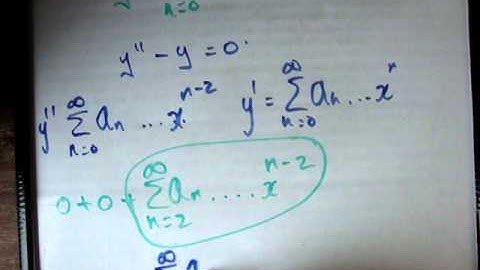 n=0
y'' - y = 0.
y'' ∑_{n=0}^{∞} a_n ... x^{n-2}   y' = ∑_{n=0}^{∞} a_n ... x^n
0 + 0 + ∑_{n=2}^{∞} a_n .... x^{n-2}
∞